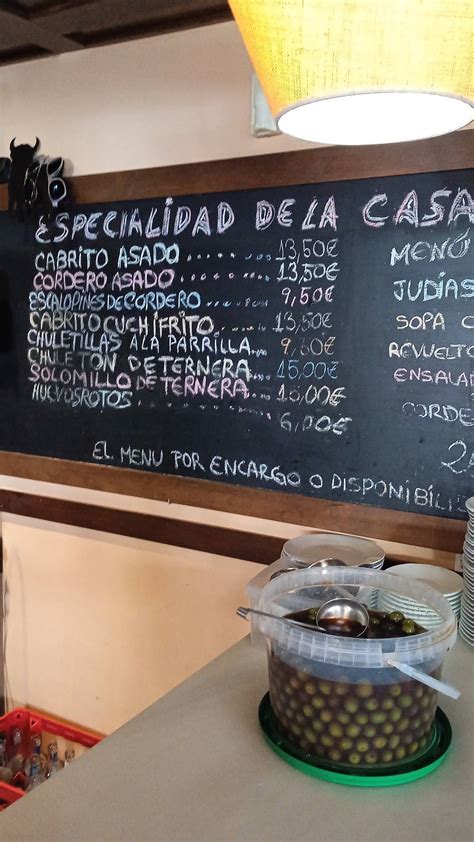 ESPECIALIDAD DE LA CASA
CABRITO ASADO ..... 13,50€
CORDERO ASADO ..... 13,50€
ESCALOPINES DE CORDERO ..... 9,50€
CABRITO CUCHIFRITO ..... 13,50€
CHULETILLAS A LA PARRILLA ... 9,60€
CHULETON DE TERNERA .... 15,00€
SOLOMILLO DE TERNERA .... 15,00€
HUEVOS ROTOS ..... 6,00€
MENÚ
JUDÍAS
SOPA
REVUELTO
ENSALA
CORDE
EL MENU POR ENCARGO O DISPONIBILI